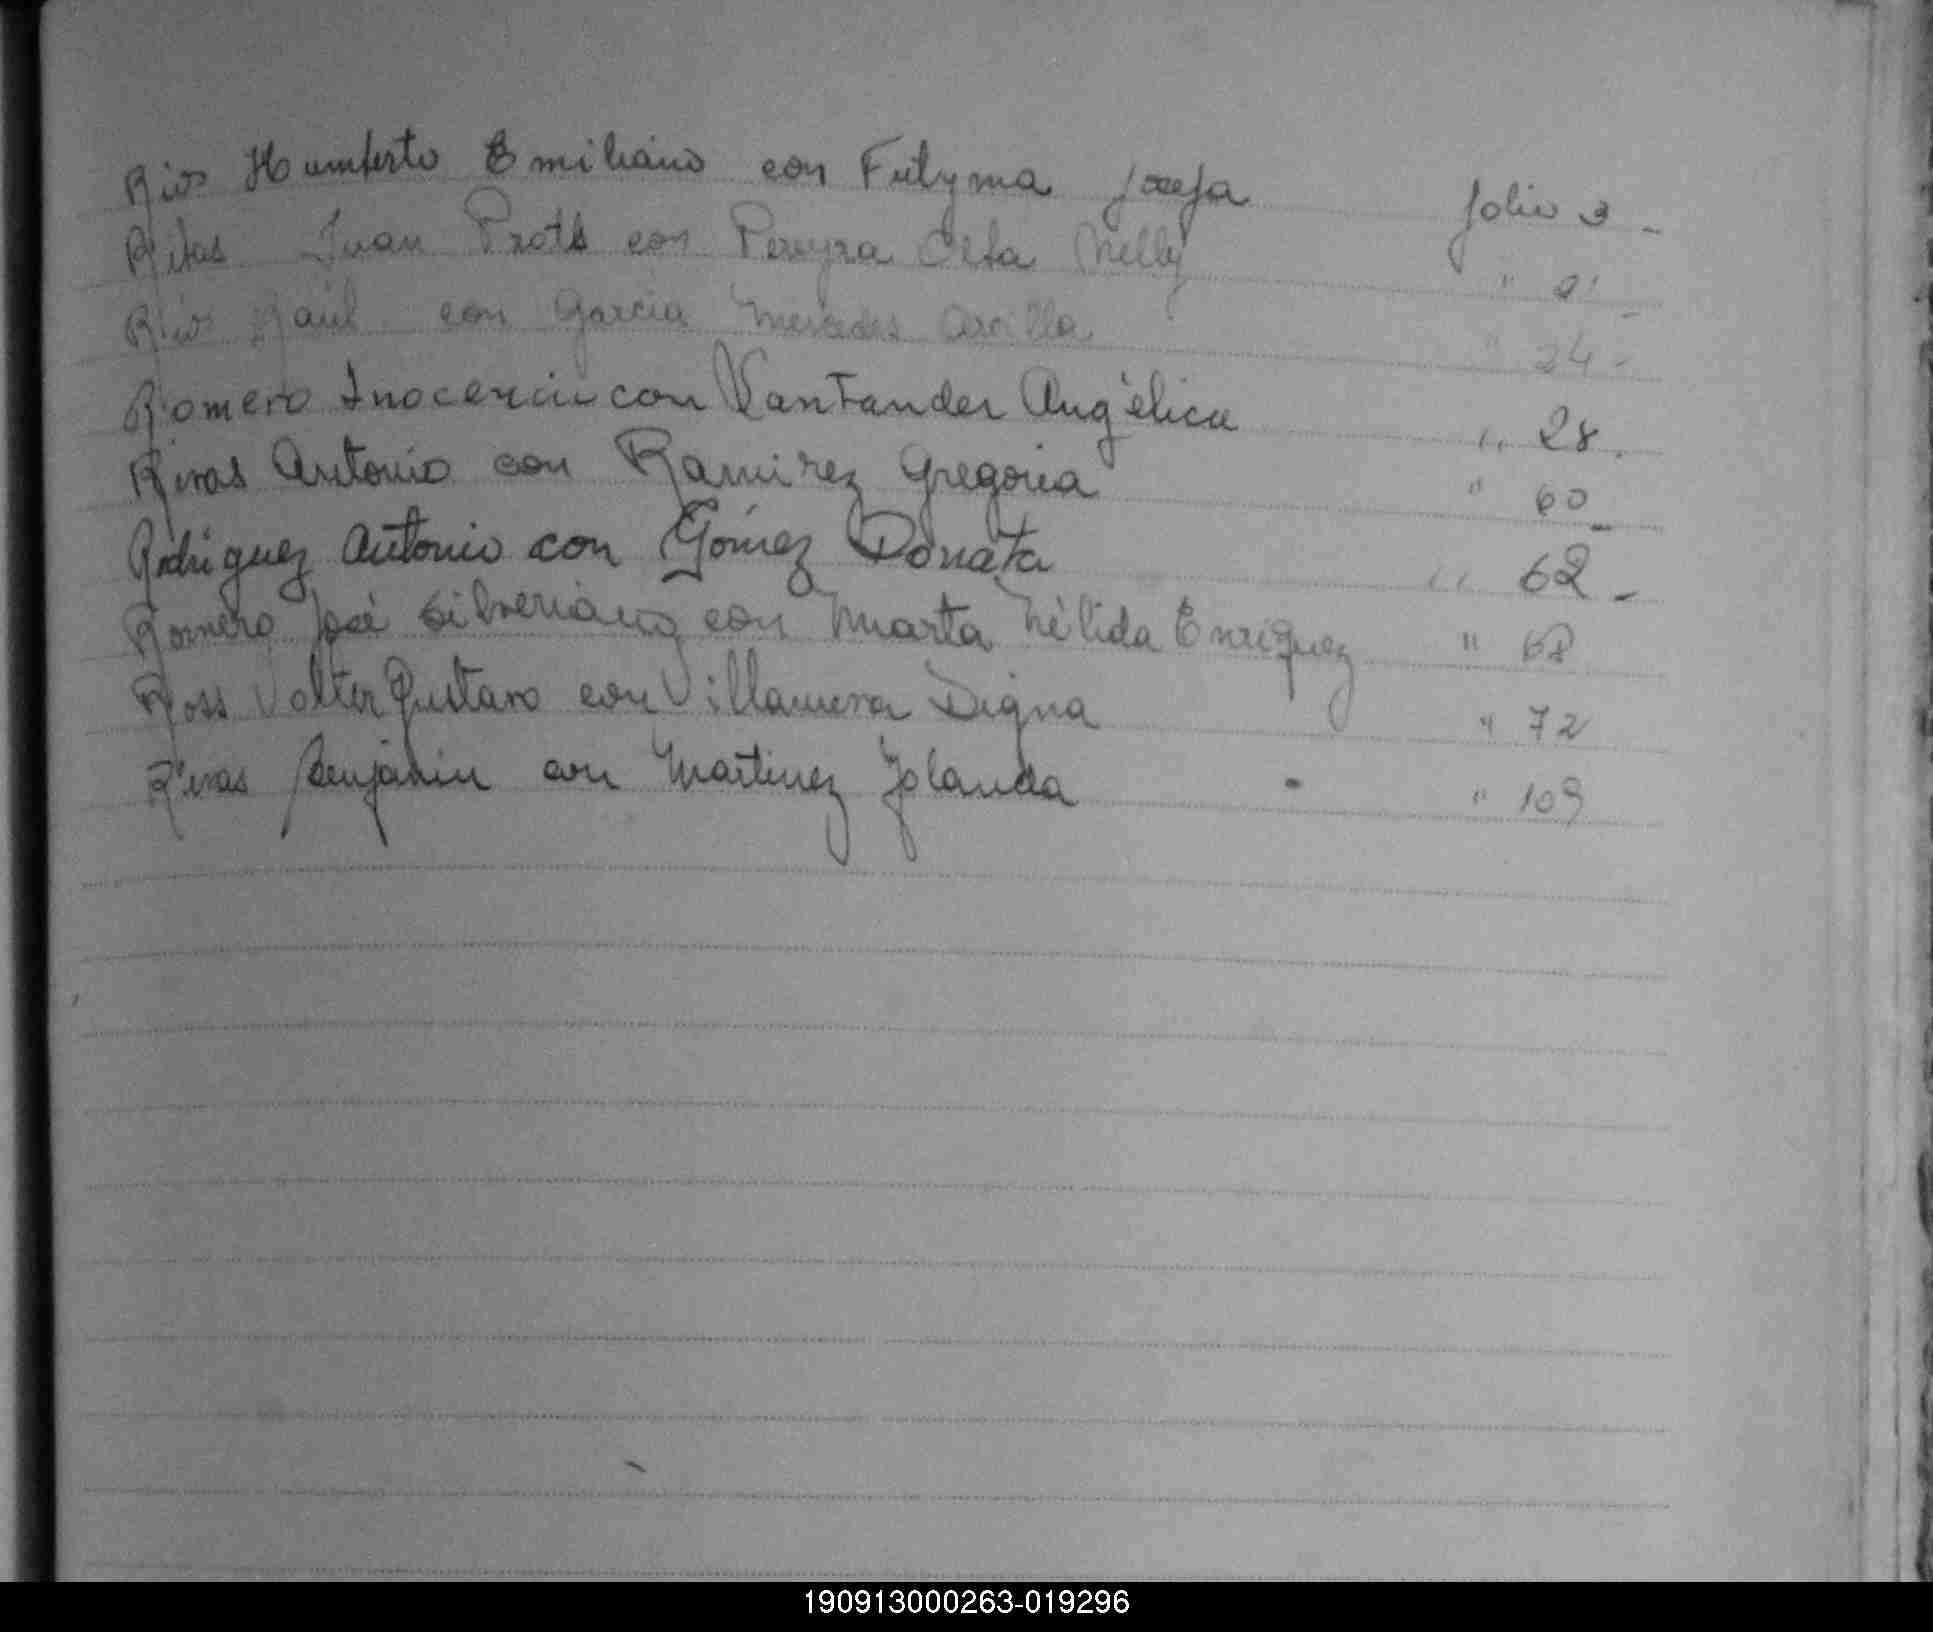 Rios Humberto Emiliano con Futyma Josefa folio 3 -
Juan con Pereyra Elfa Nelly "
Rios Raúl con Garcia Mercedes " 24 -
Romero Inocencio con Santander Angélica " 28.
Rivas Antonio con Ramirez Gregoria " 60 -
Rodriguez Antonio con Gómez Donata " 62 -
Romero José Silveriano con Marta Nélida Enriquez " 68
Ross Volter Gustavo con Villanueva Digna " 72
Rivas Benjamin con Martinez Yolanda " 109
190913000263-019296